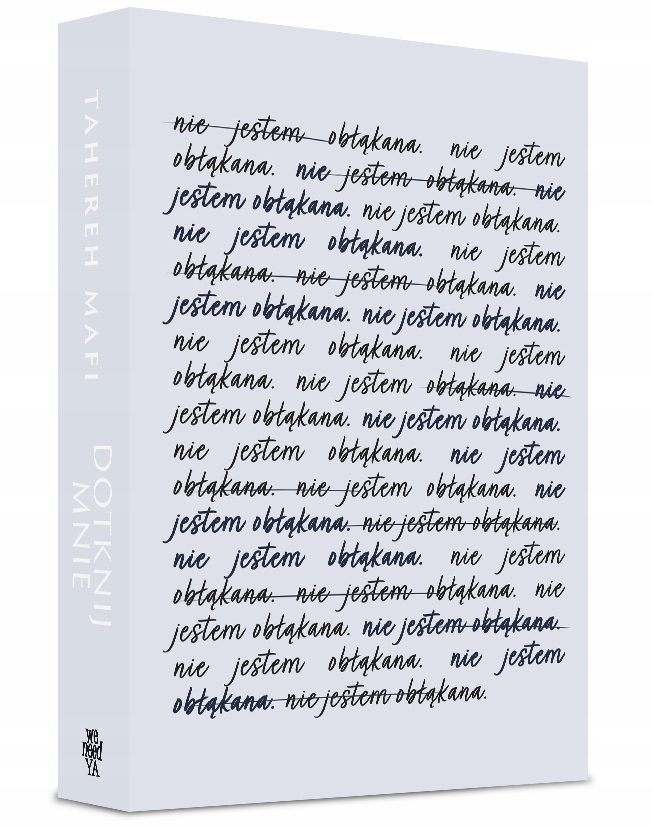 TAHEREH MAFI
DOTKNIJ
MNIE
we
need
YA
nie jestem obłąkana. nie jestem
obłąkana. nie jestem obłąkana. nie
jestem obłąkana. nie jestem obłąkana.
nie jestem obłąkana. nie jestem
obłąkana. nie jestem obłąkana. nie
jestem obłąkana. nie jestem obłąkana.
nie jestem obłąkana. nie jestem
obłąkana. nie jestem obłąkana. nie
jestem obłąkana. nie jestem obłąkana.
nie jestem obłąkana. nie jestem
obłąkana. nie jestem obłąkana. nie
jestem obłąkana. nie jestem obłąkana.
nie jestem obłąkana. nie jestem
obłąkana. nie jestem obłąkana. nie
jestem obłąkana. nie jestem obłąkana.
nie jestem obłąkana. nie jestem
obłąkana. nie jestem obłąkana.